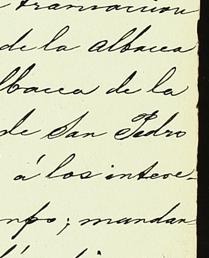 transaccion
de la Albacea
lbacea de la
de San Pedro
á los intere-
mpo; mandan